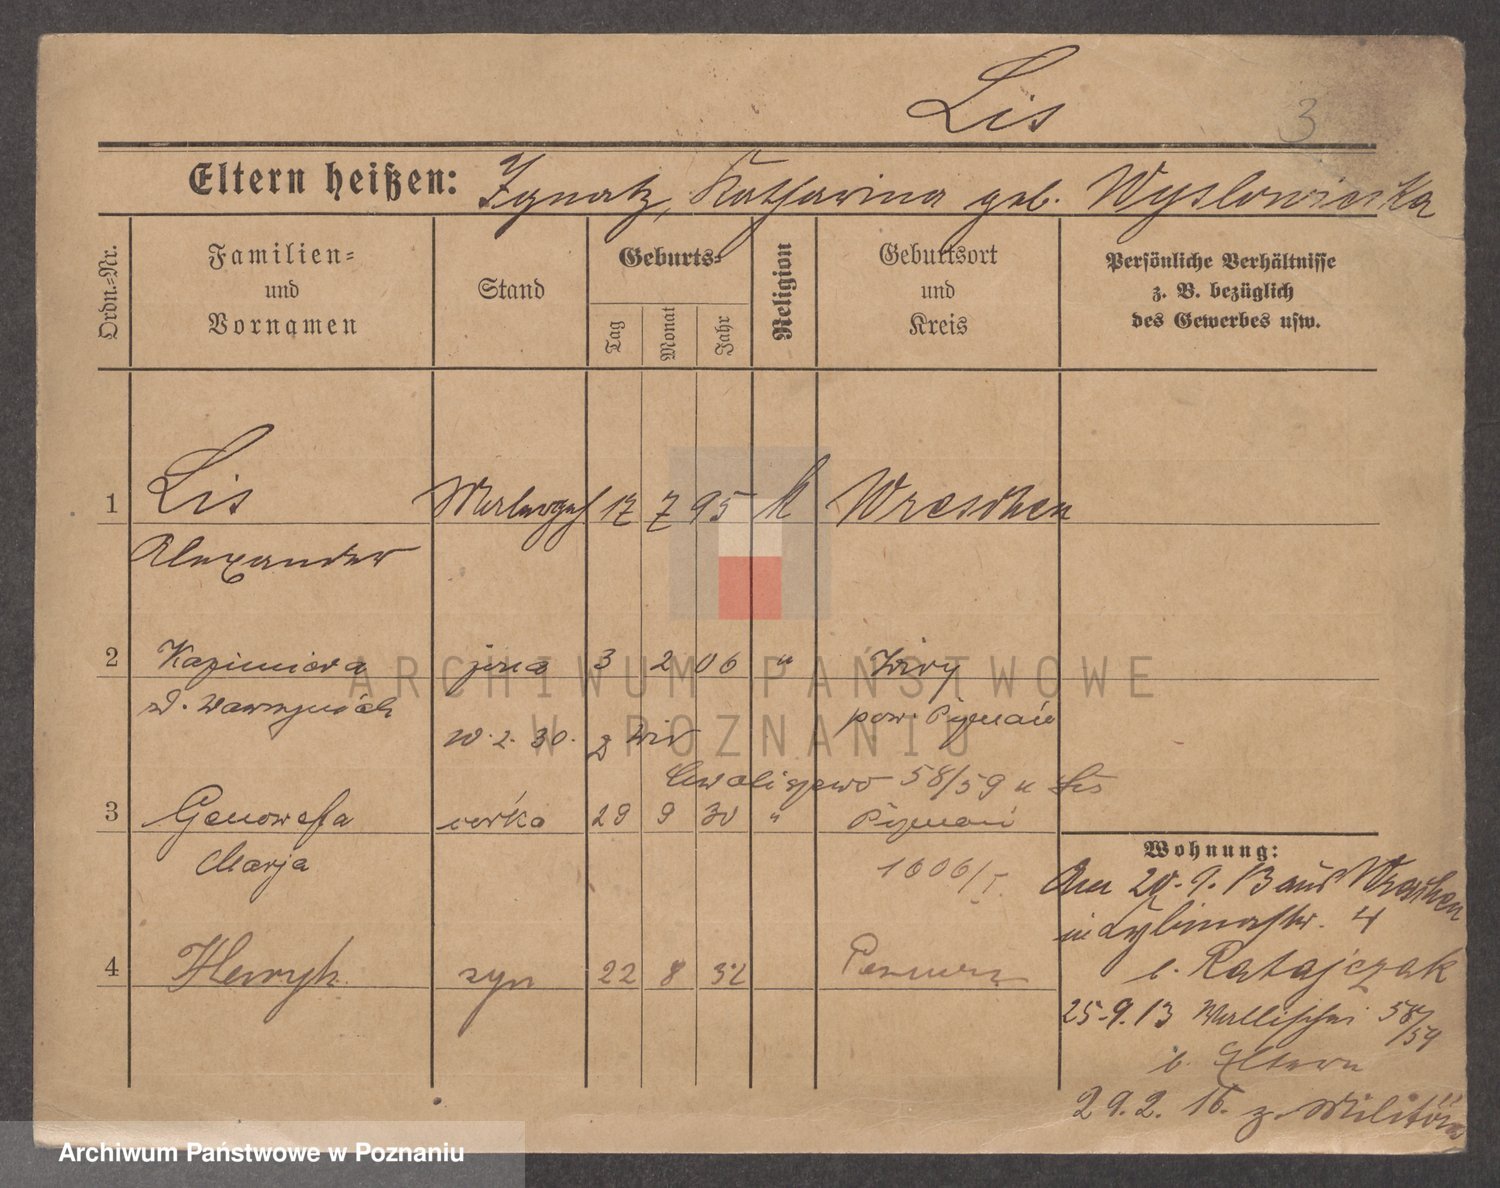 Lis
3
Eltern heißen: Ignatz, Katharina geb. Wyslowicska
Ordn.-Nr.
Familien- und Vornamen
Stand
Geburts-
Tag
Monat
Jahr
Religion
Geburtsort und Kreis
Persönliche Verhältnisse z. B. bezüglich des Gewerbes usw.
1 Lis 17 7 95 k Wreschen
Alexander
2 Kazimiera żona 3 2 06 " Żiry
z d. Wawrzyniak pow. Poznań
10.2.30. z Wir
Chwaliszewo 58/59 u Lis
3 Genowefa córka 29 9 30 " Poznań
Marja 1606/I
4 Henryk syn 22 8 32
Wohnung:
Am 20.9.13 aus Wreschen
in 4
b. Ratajczak
25.9.13 Wallischei 58/59
b. Eltern
29.2.16 z. Militär
ARCHIWUM PAŃSTWOWE
W POZNANIU
Archiwum Państwowe w Poznaniu